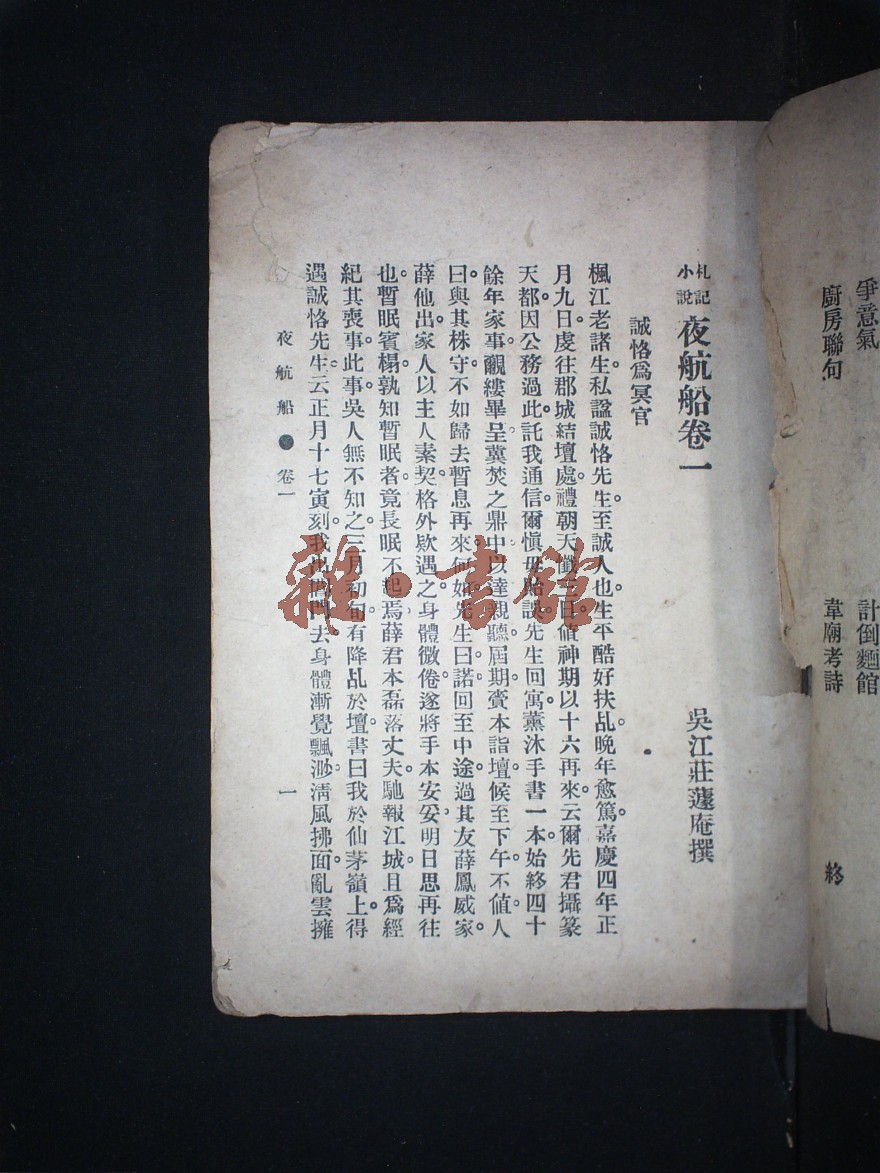 爭意氣
計倒麵館
廚房聯句
韋廟考詩
終
札記小說 夜航船卷一
吳江莊蘧庵撰
誠恪爲冥官
楓江老諸生私諡誠恪先生。至誠人也。生平酷好扶乩。晚年愈篤。嘉慶四年正
月九日。虔往郡城結壇處。禮朝天懺三日。値神期以十六再來。云爾先君攝篆
天都。因公務過此。託我通信。爾愼毋貽誤。先生回寓。薰沐手書一本。始終四十
餘年家事。覼縷畢呈。冀焚之鼎中。以達親聽。屆期賫本詣壇。候至下午不値。人
曰。與其株守。不如歸去暫息再來何如。先生曰諾。回至中途。過其友薛鳳威家。
薛他出。家人以主人素契。格外欵遇之。身體微倦。遂將手本安妥。明日思再往
也。暫眠賓榻。孰知暫眠者。竟長眠不起焉。薛君本磊落丈夫。馳報江城。且爲經
紀其喪事。此事吳人無不知之。三月初旬。有降乩於壇。書曰。我於仙茅嶺上。得
遇誠恪先生。云正月十七寅刻。我也出門去。身體漸覺飄渺。淸風拂面。亂雲擁
夜航船 卷一
一
雜·書館